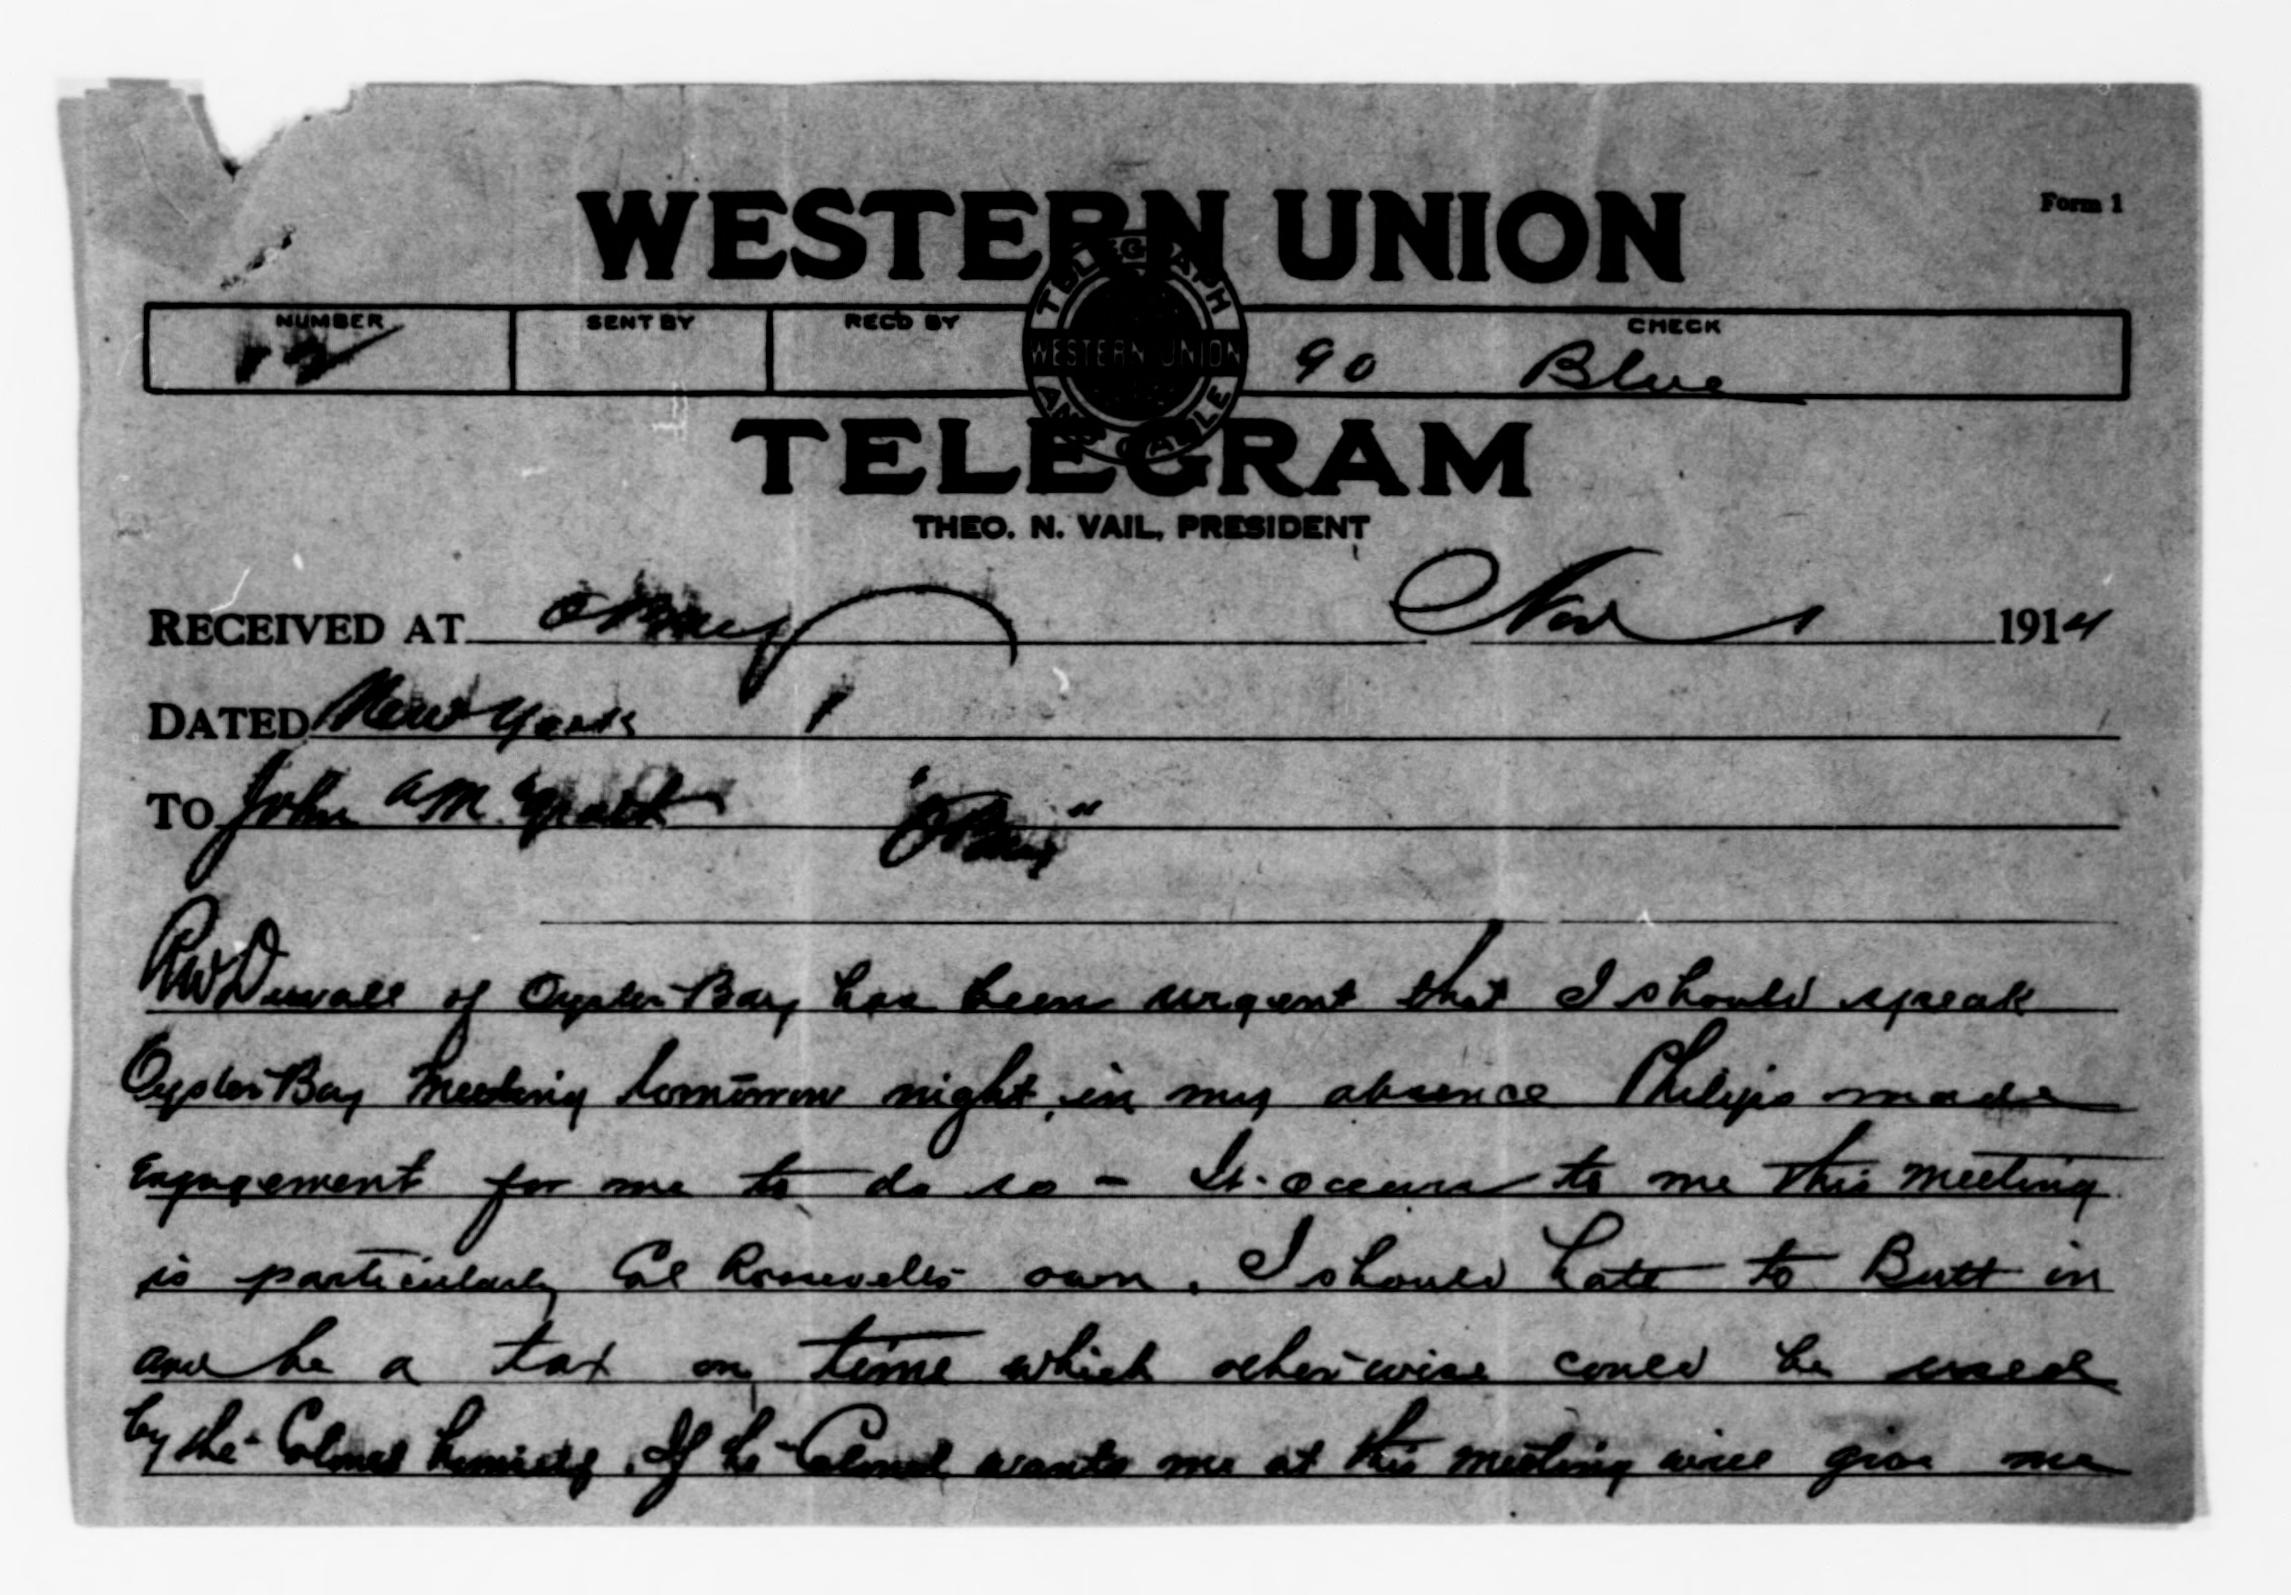 WESTERN UNION
Form 1
NUMBER SENT BY REC'D BY CHECK
TELEGRAPH AND CABLE
WESTERN UNION
90 Blue
TELEGRAM
THEO. N. VAIL, PRESIDENT
RECEIVED AT OBay Nov 1 1914
DATED New York 1
TO John A McGrath "OBay"
RW Duvall of Oyster Bay has been urgent that I should speak
Oyster Bay Meeting tomorrow night, in my absence Philips made
Engagement for me to do so - It occurs to me this meeting
is particularly Col Roosevelts own. I should hate to Butt in
and be a tax on time which otherwise could be used
by the Colonel himself. If the Colonel wants me at this meeting will give me